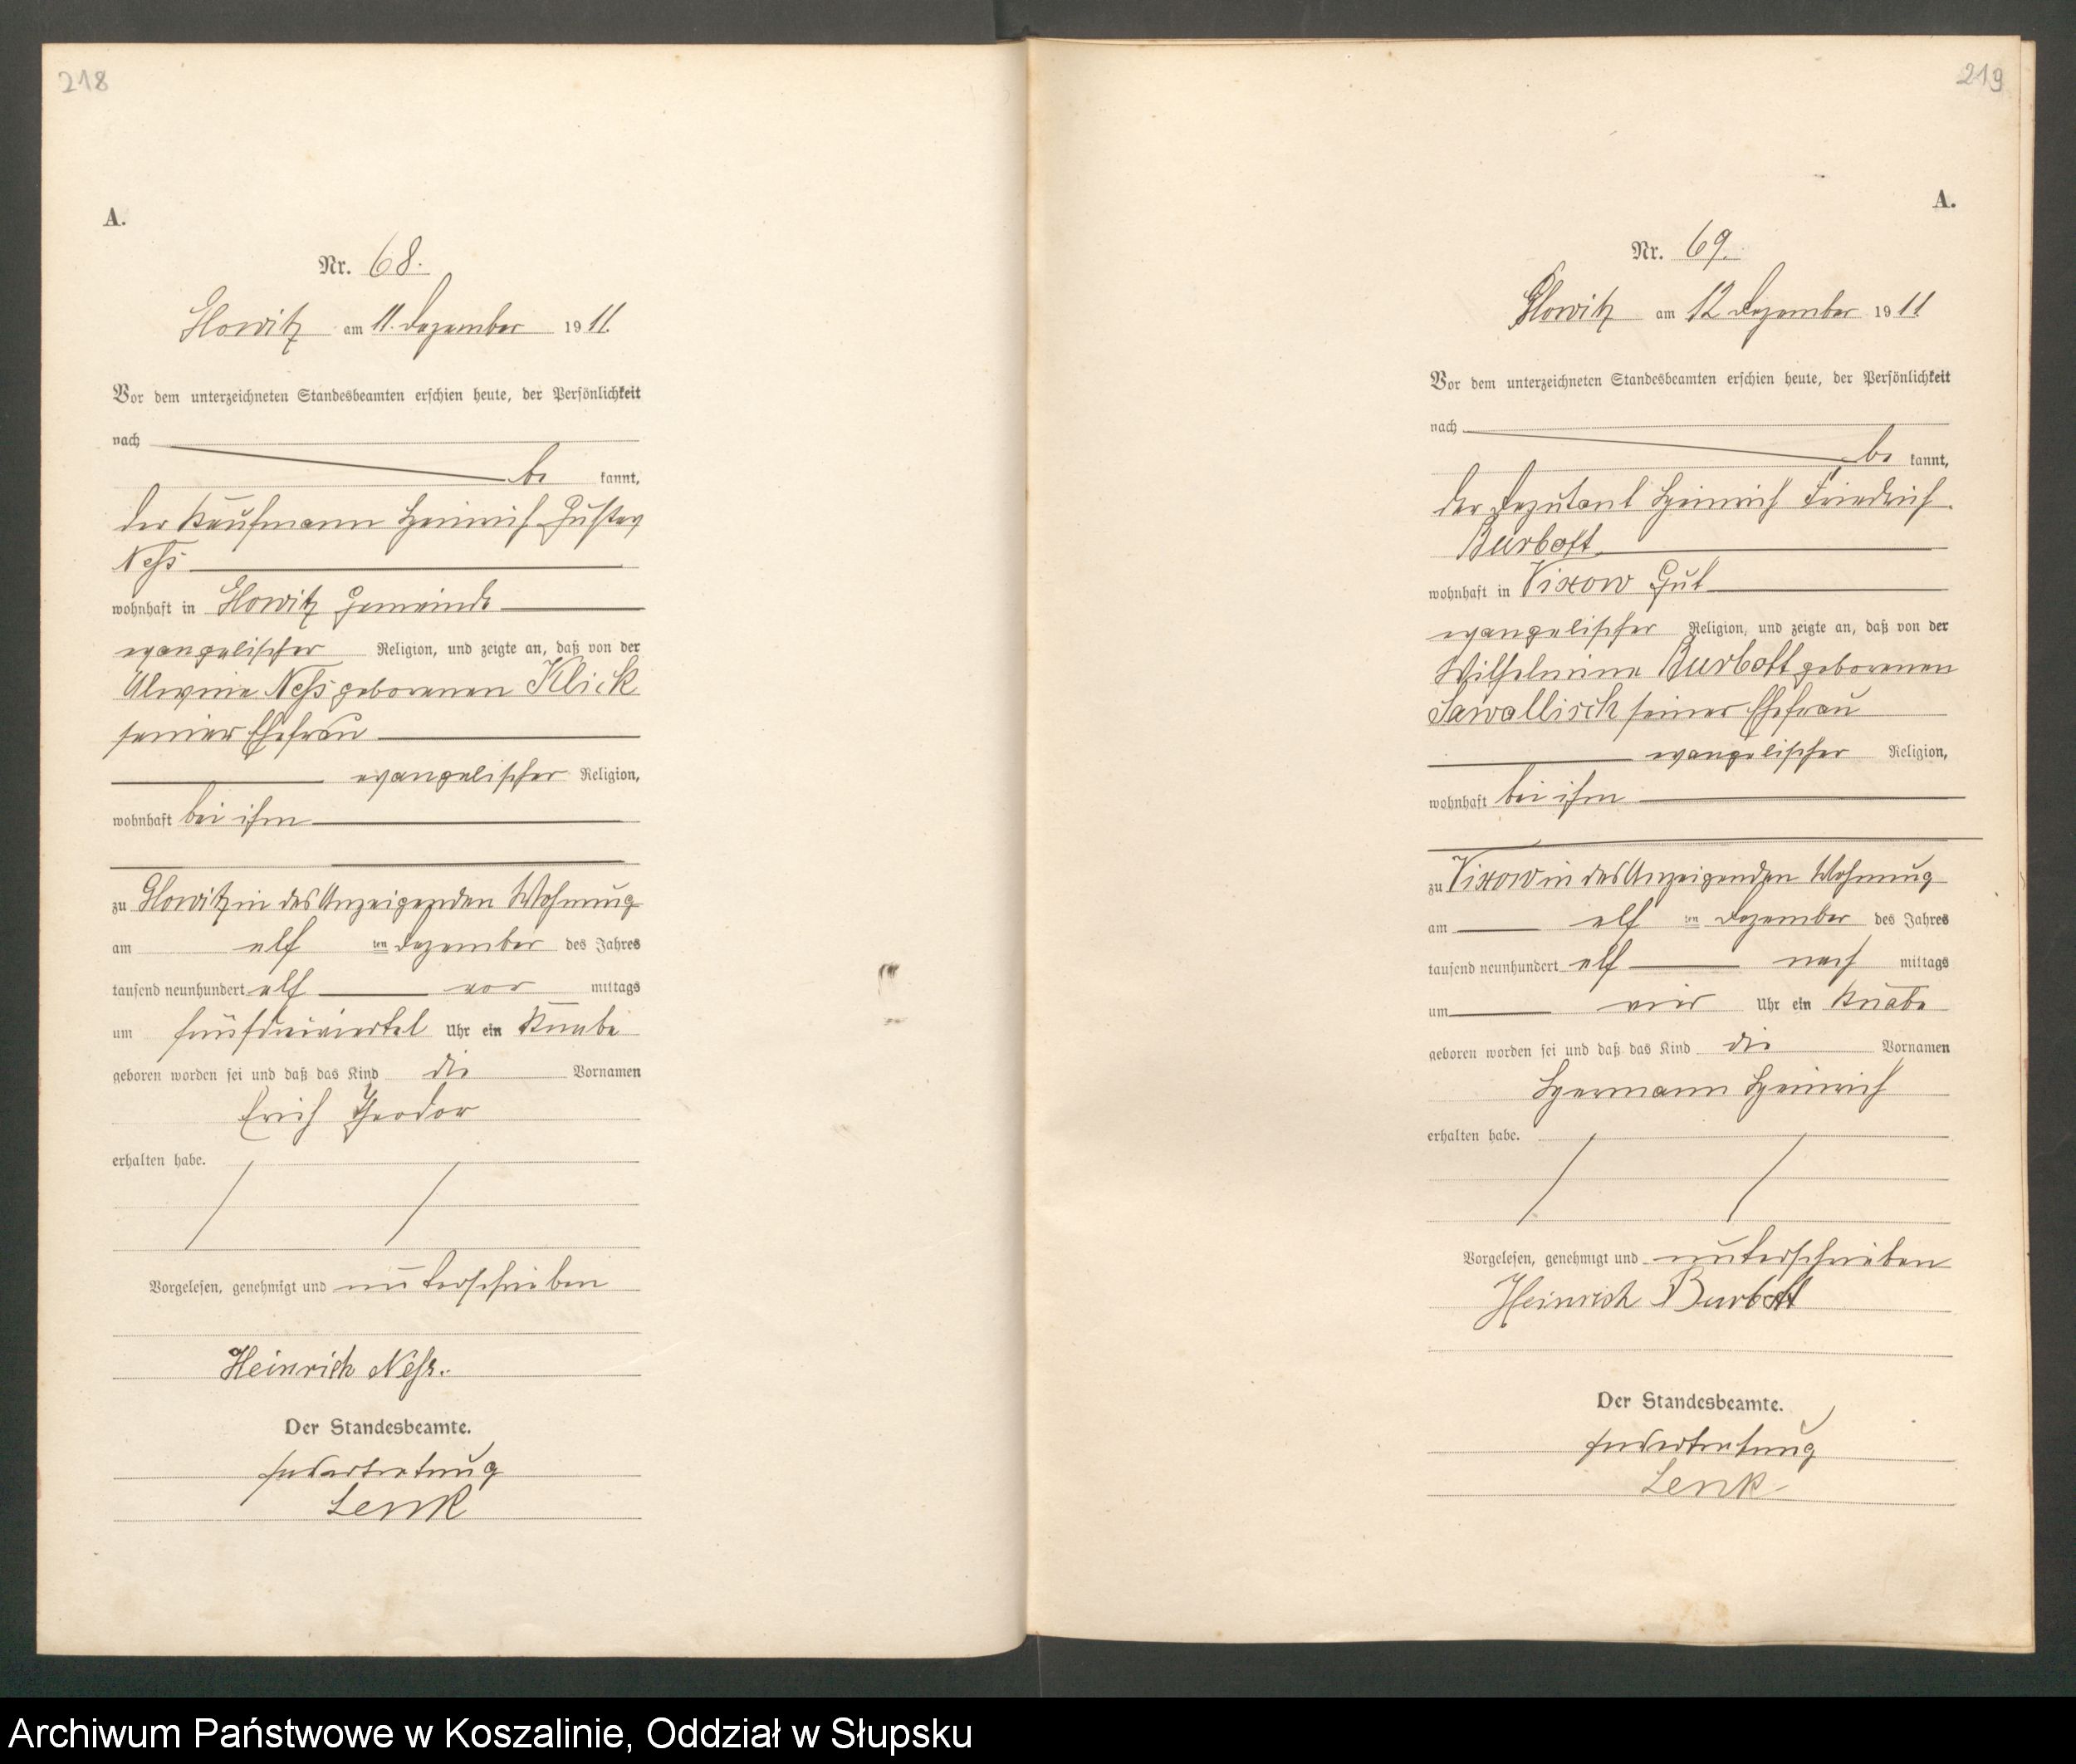 218
A.
Nr. 68.
Glowitz am 11. Dezember 1911.
Vor dem unterzeichneten Standesbeamten erschien heute, der Persönlichkeit
nach
be kannt,
der Kaufmann Heinrich Gustav
Neß
wohnhaft in Glowitz Gemeinde
evangelischer Religion, und zeigte an, daß von der
Alwine Neß geborenen Klick
seiner Ehefrau
evangelischer Religion,
wohnhaft bei ihm
zu Glowitz in des Anzeigenden Wohnung
am elf ten Dezember des Jahres
tausend neunhundert elf vor mittags
um fünfdreiviertel Uhr ein Knabe
geboren worden sei und daß das Kind die Vornamen
Erich Theodor
erhalten habe.
Vorgelesen, genehmigt und unterschrieben
Heinrich Neß.
Der Standesbeamte.
In Vertretung
Lenk
219
A.
Nr. 69.
Glowitz am 12 Dezember 1911.
Vor dem unterzeichneten Standesbeamten erschien heute, der Persönlichkeit
nach
be kannt,
der Deputant Heinrich Friedrich
Burbott
wohnhaft in Vixow Gut
evangelischer Religion, und zeigte an, daß von der
Wilhelmine Burbott geborenen
Sawallisch seiner Ehefrau
evangelischer Religion,
wohnhaft bei ihm
zu Vixow in des Anzeigenden Wohnung
am elf ten Dezember des Jahres
tausend neunhundert elf nach mittags
um vier Uhr ein Knabe
geboren worden sei und daß das Kind die Vornamen
Hermann Heinrich
erhalten habe.
Vorgelesen, genehmigt und unterschrieben
Heinrich Burbott
Der Standesbeamte.
In Vertretung
Lenk
Archiwum Państwowe w Koszalinie, Oddział w Słupsku